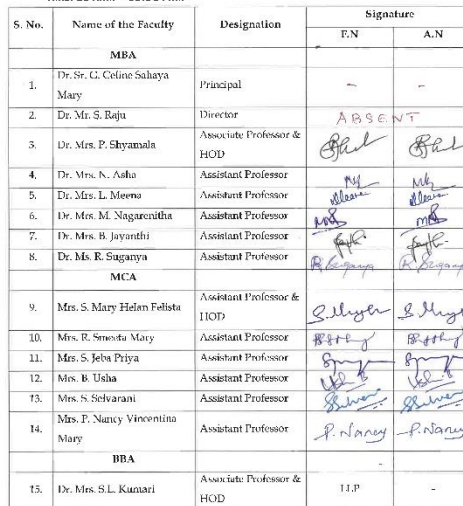 S. No. Name of the Faculty Designation Signature
F.N A.N
MBA
1. Dr. Sr. G. Celine Sahaya Mary Principal - -
2. Dr. Mr. S. Raju Director ABSENT
3. Dr. Mrs. P. Shyamala Associate Professor & HOD
4. Dr. Mrs. N. Asha Assistant Professor
5. Dr. Mrs. L. Meena Assistant Professor
6. Dr. Mrs. M. Nagarenitha Assistant Professor
7. Dr. Mrs. B. Jayanthi Assistant Professor
8. Dr. Ms. R. Suganya Assistant Professor R. Suganya R. Suganya
MCA
9. Mrs. S. Mary Helan Felista Assistant Professor & HOD
10. Mrs. R. Smeeta Mary Assistant Professor
11. Mrs. S. Jeba Priya Assistant Professor
12. Mrs. B. Usha Assistant Professor
13. Mrs. S. Selvarani Assistant Professor
14. Mrs. P. Nancy Vincentina Mary Assistant Professor P. Nancy P. Nancy
BBA
15. Dr. Mrs. S.L. Kumari Associate Professor & HOD LLP -